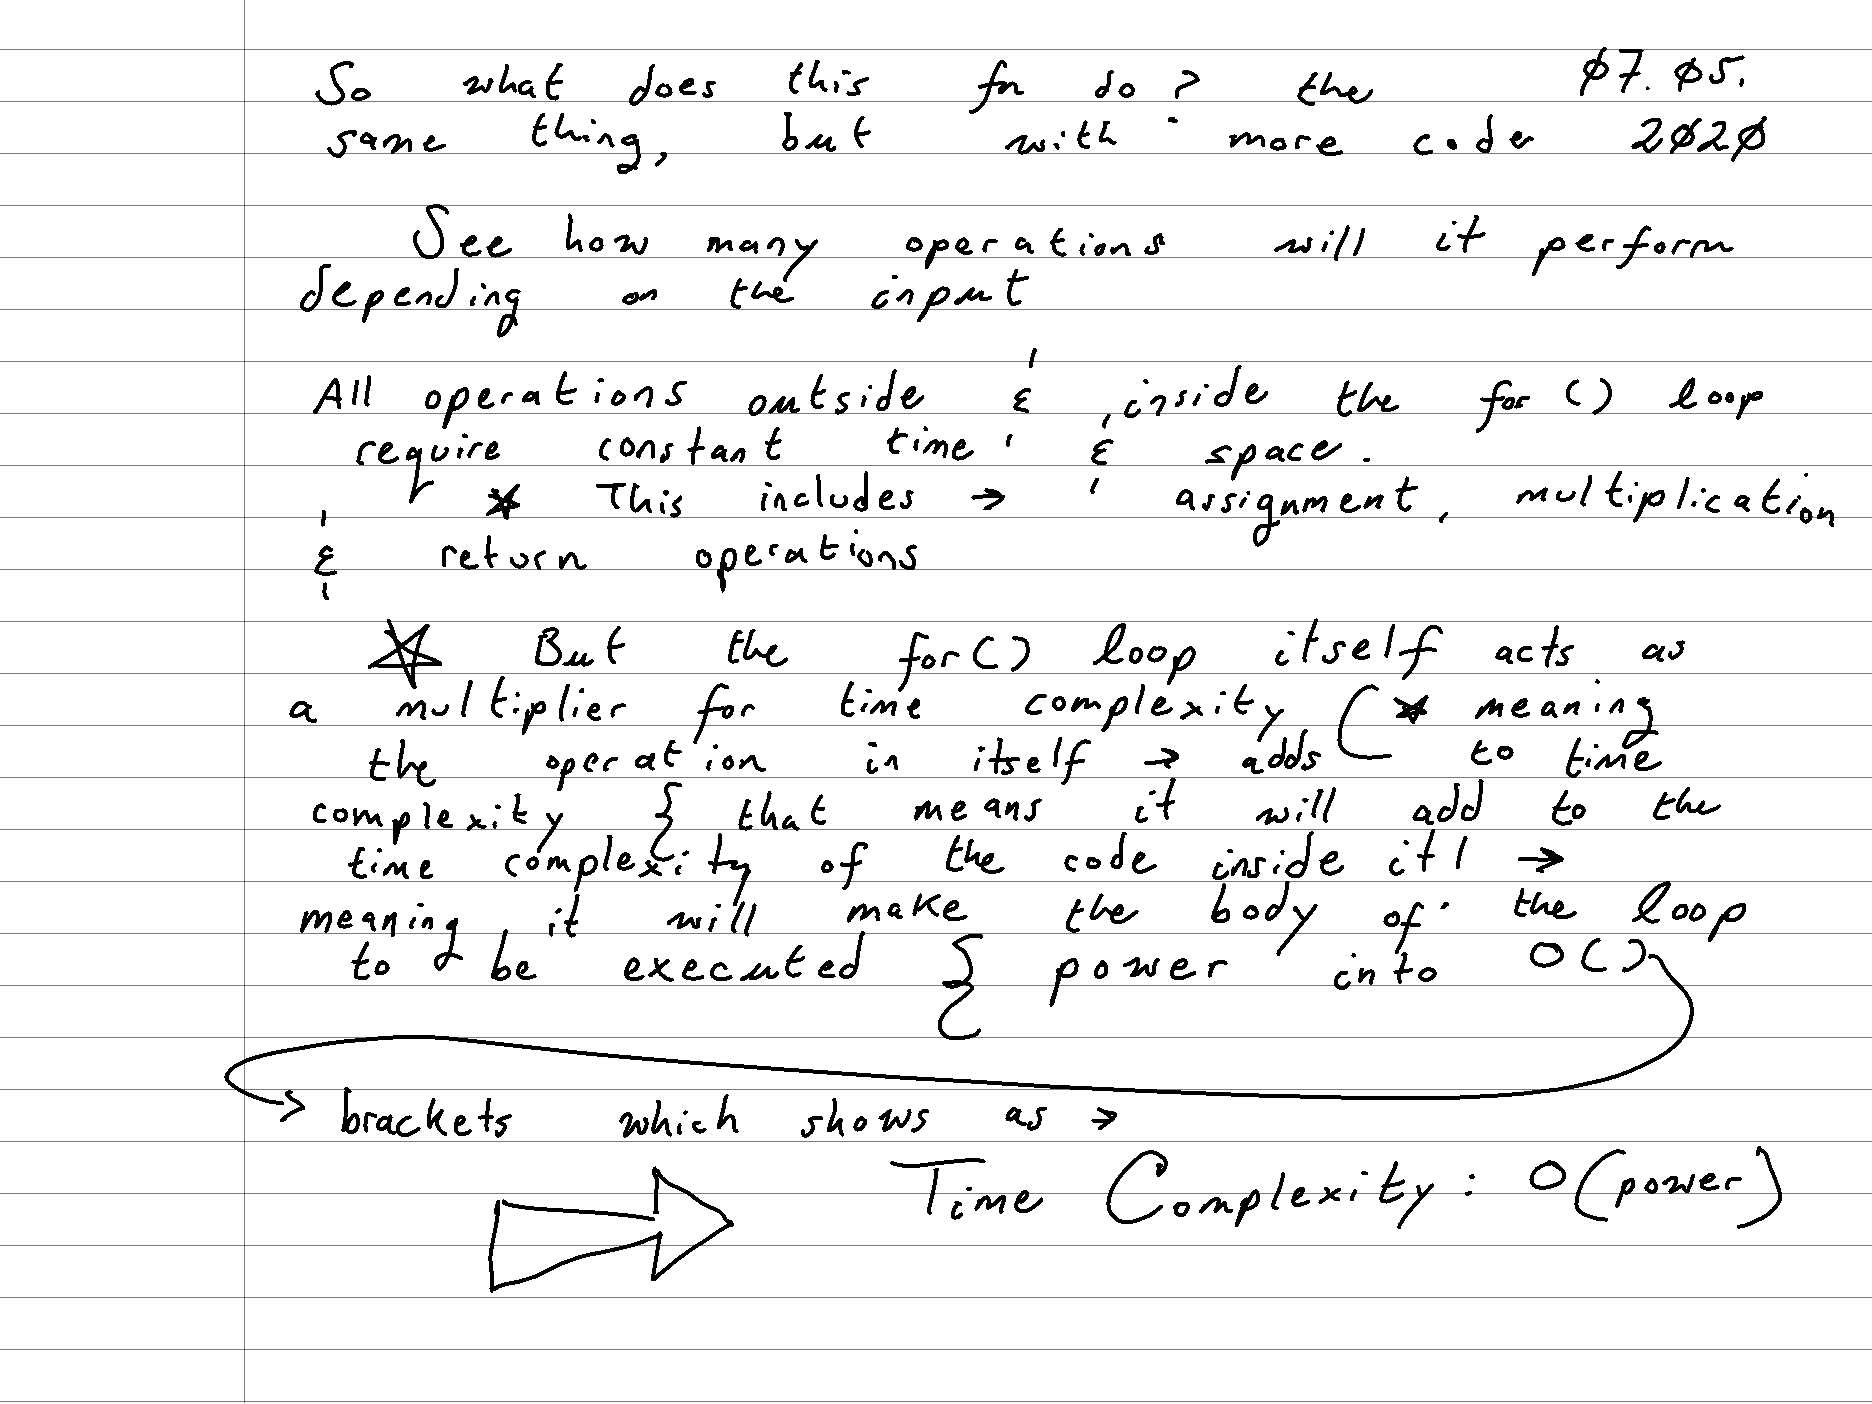 So what does this fn do? the 07.05.
same thing, but with more code 2020
See how many operations will it perform
depending on the input
All operations outside & inside the for() loop
require constant time & space.
* This includes → assignment, multiplication
& return operations
☆ But the for() loop itself acts as
a multiplier for time complexity (* meaning
the operation in itself → adds to time
complexity { that means it will add to the
time complexity of the code inside it! →
meaning it will make the body of the loop
to be executed { power into O()
→ brackets which shows as →
Time Complexity: O(power)